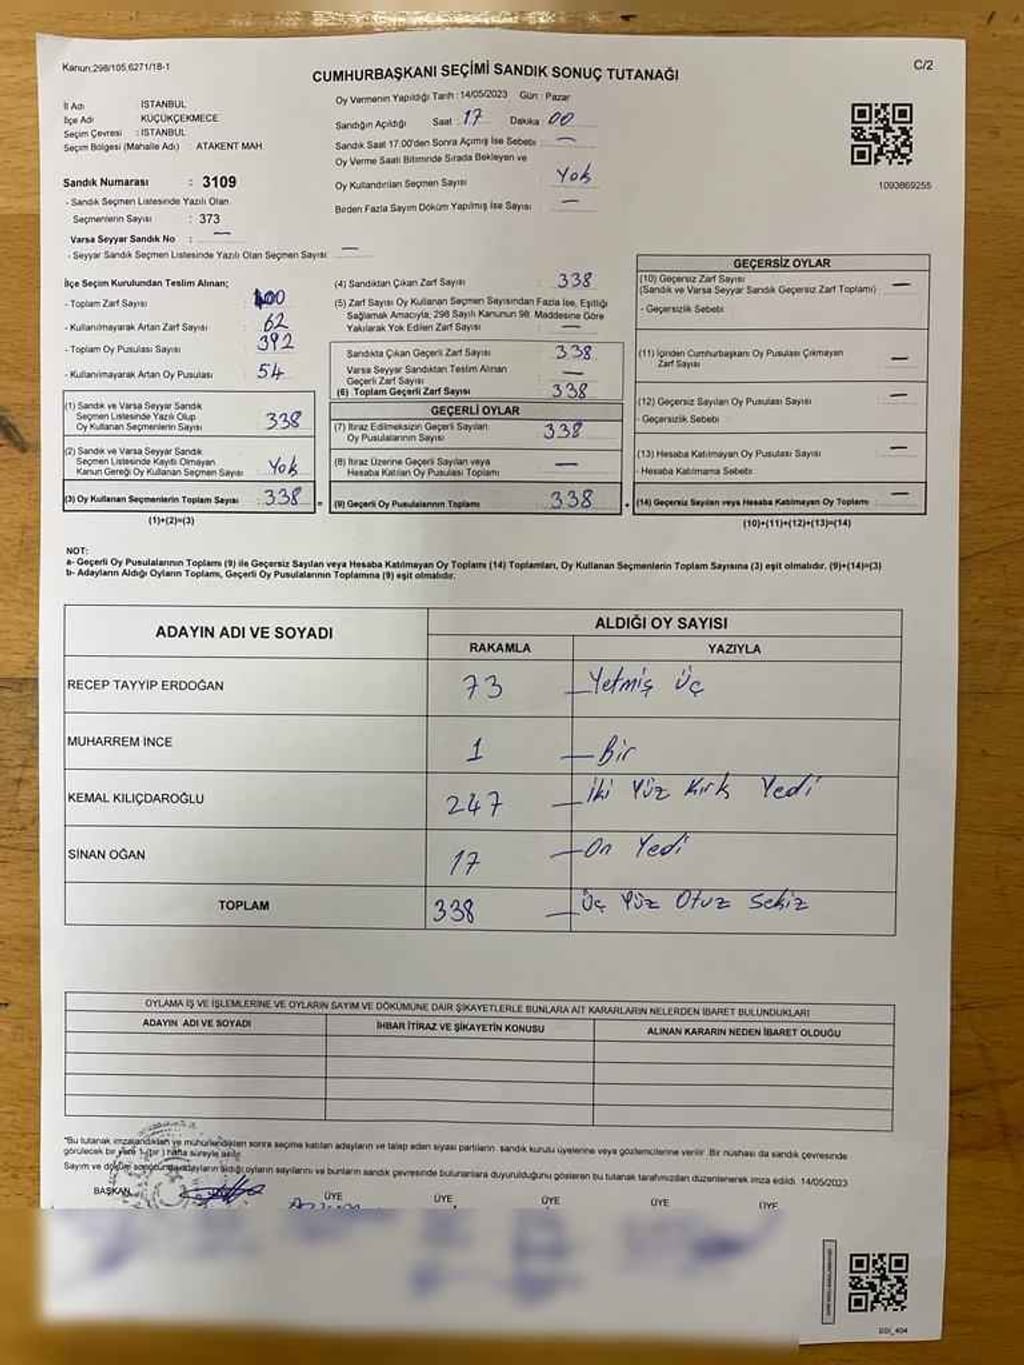 Kanun:298/105,6271/18-1
C/2
CUMHURBAŞKANI SEÇİMİ SANDIK SONUÇ TUTANAĞI
İl Adı İSTANBUL
İlçe Adı KÜÇÜKÇEKMECE
Seçim Çevresi : İSTANBUL
Seçim Bölgesi (Mahalle Adı) ATAKENT MAH.
Oy Vermenin Yapıldığı Tarih : 14/05/2023 Gün : Pazar
Sandığın Açıldığı Saat : 17 Dakika : 00
Sandık Saat 17.00'den Sonra Açılmış İse Sebebi : —
Oy Verme Saati Bitiminde Sırada Bekleyen ve
Oy Kullandırılan Seçmen Sayısı Yok
Birden Fazla Sayım Döküm Yapılmış İse Sayısı —
1093869255
Sandık Numarası : 3109
- Sandık Seçmen Listesinde Yazılı Olan
Seçmenlerin Sayısı : 373
Varsa Seyyar Sandık No : —
- Seyyar Sandık Seçmen Listesinde Yazılı Olan Seçmen Sayısı: —
İlçe Seçim Kurulundan Teslim Alınan;
- Toplam Zarf Sayısı : 400
- Kullanılmayarak Artan Zarf Sayısı : 62
- Toplam Oy Pusulası Sayısı : 392
- Kullanılmayarak Artan Oy Pusulası : 54
(1) Sandık ve Varsa Seyyar Sandık
Seçmen Listesinde Yazılı Olup
Oy Kullanan Seçmenlerin Sayısı : 338
(2) Sandık ve Varsa Seyyar Sandık
Seçmen Listesinde Kayıtlı Olmayan
Kanun Gereği Oy Kullanan Seçmen Sayısı : Yok
(3) Oy Kullanan Seçmenlerin Toplam Sayısı : 338 =
(1)+(2)=(3)
(4) Sandıktan Çıkan Zarf Sayısı : 338
(5) Zarf Sayısı Oy Kullanan Seçmen Sayısından Fazla İse, Eşitliği
Sağlamak Amacıyla, 298 Sayılı Kanunun 98. Maddesine Göre
Yakılarak Yok Edilen Zarf Sayısı : —
Sandıkta Çıkan Geçerli Zarf Sayısı : 338
Varsa Seyyar Sandıktan Teslim Alınan
Geçerli Zarf Sayısı : —
(6) Toplam Geçerli Zarf Sayısı : 338
GEÇERLİ OYLAR
(7) İtiraz Edilmeksizin Geçerli Sayılan
Oy Pusulalarının Sayısı : 338
(8) İtiraz Üzerine Geçerli Sayılan veya
Hesaba Katılan Oy Pusulası Toplamı : —
(9) Geçerli Oy Pusulalarının Toplamı : 338 +
GEÇERSİZ OYLAR
(10) Geçersiz Zarf Sayısı
(Sandık ve Varsa Seyyar Sandık Geçersiz Zarf Toplamı) : —
- Geçersizlik Sebebi :
(11) İçinden Cumhurbaşkanı Oy Pusulası Çıkmayan
Zarf Sayısı : —
(12) Geçersiz Sayılan Oy Pusulası Sayısı : —
- Geçersizlik Sebebi :
(13) Hesaba Katılmayan Oy Pusulası Sayısı : —
- Hesaba Katılmama Sebebi :
(14) Geçersiz Sayılan veya Hesaba Katılmayan Oy Toplamı : —
(10)+(11)+(12)+(13)=(14)
NOT:
a- Geçerli Oy Pusulalarının Toplamı (9) ile Geçersiz Sayılan veya Hesaba Katılmayan Oy Toplamı (14) Toplamları, Oy Kullanan Seçmenlerin Toplam Sayısına (3) eşit olmalıdır. (9)+(14)=(3)
b- Adayların Aldığı Oyların Toplamı, Geçerli Oy Pusulalarının Toplamına (9) eşit olmalıdır.
ADAYIN ADI VE SOYADI ALDIĞI OY SAYISI
RAKAMLA YAZIYLA
RECEP TAYYİP ERDOĞAN 73 — Yetmiş Üç
MUHARREM İNCE 1 — Bir
KEMAL KILIÇDAROĞLU 247 — İki Yüz Kırk Yedi
SİNAN OĞAN 17 — On Yedi
TOPLAM 338 — Üç Yüz Otuz Sekiz
OYLAMA İŞ VE İŞLEMLERİNE VE OYLARIN SAYIM VE DÖKÜMÜNE DAİR ŞİKAYETLERLE BUNLARA AİT KARARLARIN NELERDEN İBARET BULUNDUKLARI
ADAYIN ADI VE SOYADI İHBAR İTİRAZ VE ŞİKAYETİN KONUSU ALINAN KARARIN NEDEN İBARET OLDUĞU
"Bu tutanak imzalandıktan ve mühürlendikten sonra seçime katılan adayların ve talep eden siyasi partilerin, sandık kurulu üyelerine veya gözlemcilerine verilir. Bir nüshası da sandık çevresinde
görülecek bir yere 1 (bir) hafta süreyle asılır.
Sayım ve döküm sonucunda adayların aldığı oyların sayılarını ve bunların sandık çevresinde bulunanlara duyurulduğunu gösteren bu tutanak tarafımızdan düzenlenerek imza edildi. 14/05/2023
BAŞKAN ÜYE ÜYE ÜYE ÜYE ÜYE